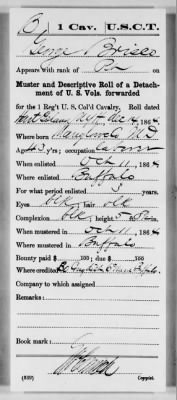 B | 1 Cav. | U.S.C.T.
George Briseo
Appears with rank of Pvt on
Muster and Descriptive Roll of a Detach-
ment of U. S. Vols. forwarded
for the 1 Reg't U. S. Col'd Cavalry. Roll dated
Hart Island N.Y.H. Dec 14, 1864.
Where born M.D.
Age 43 y'rs; occupation Laborer
When enlisted Oct 11, 1864
Where enlisted Buffalo
For what period enlisted 3 years.
Eyes blk, hair blk
Complexion blk, height 5 ft. in.
When mustered in Oct 11, 1864
Where mustered in Buffalo
Bounty paid $ 100; due $ 100
Where credited
Company to which assigned
Remarks:
Book mark:
(339) Copyist.